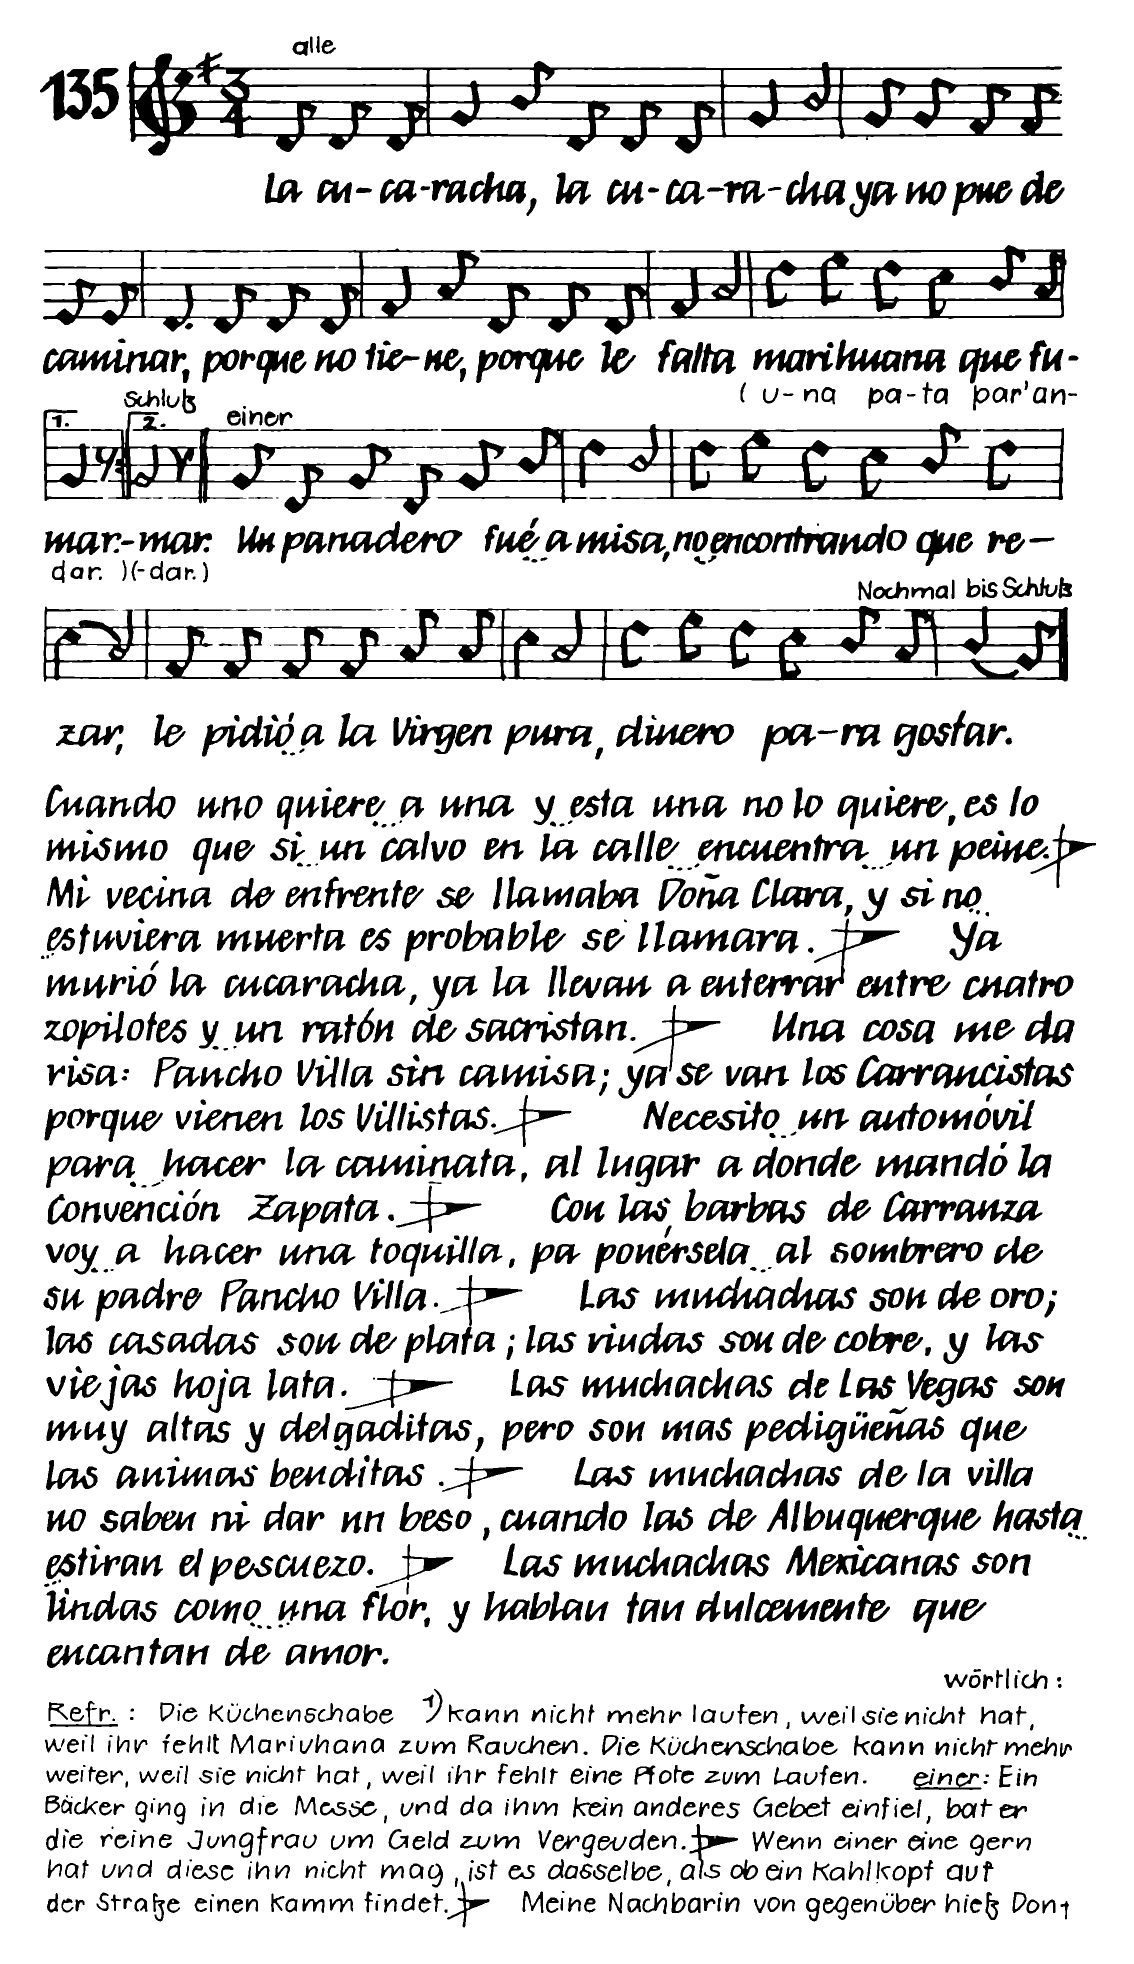 alle
135
La cu-ca-racha, la cu-ca-ra-cha ya no pue de
caminar, porque no tie-ne, porque le falta marihuana que fu-
( u-na pa-ta par'an-
Schluß
1. 2. einer
mar.-mar. Un panadero fué a misa, no encontrando que re-
dar. )(-dar.)
Nochmal bis Schluß
zar, le pidió a la Virgen pura, dinero pa-ra gostar.
Cuando uno quiere a una y esta una no lo quiere, es lo
mismo que si un calvo en la calle encuentra un peine.
Mi vecina de enfrente se llamaba Doña Clara, y si no
estuviera muerta es probable se llamara. Ya
murió la cucaracha, ya la llevan a enterrar entre cuatro
zopilotes y un ratón de sacristan. Una cosa me da
risa: Pancho Villa sin camisa; ya se van los Carrancistas
porque vienen los Villistas. Necesito un automóvil
para hacer la caminata, al lugar a donde mandó la
Convención Zapata. Con las barbas de Carranza
voy a hacer una toquilla, pa ponérsela al sombrero de
su padre Pancho Villa. Las muchachas son de oro;
las casadas son de plata; las viudas son de cobre, y las
viejas hoja lata. Las muchachas de Las Vegas son
muy altas y delgaditas, pero son mas pedigüeñas que
las animas benditas. Las muchachas de la villa
no saben ni dar un beso, cuando las de Albuquerque hasta
estiran el pescuezo. Las muchachas Mexicanas son
lindas como una flor, y hablan tan dulcemente que
encantan de amor.
wörtlich:
Refr.: Die Küchenschabe 1) kann nicht mehr laufen, weil sie nicht hat,
weil ihr fehlt Mariuhana zum Rauchen. Die Küchenschabe kann nicht mehr
weiter, weil sie nicht hat, weil ihr fehlt eine Pfote zum Laufen. einer: Ein
Bäcker ging in die Messe, und da ihm kein anderes Gebet einfiel, bat er
die reine Jungfrau um Geld zum Vergeuden. Wenn einer eine gern
hat und diese ihn nicht mag, ist es dasselbe, als ob ein Kahlkopf auf
der Straße einen Kamm findet. Meine Nachbarin von gegenüber hieß Don-